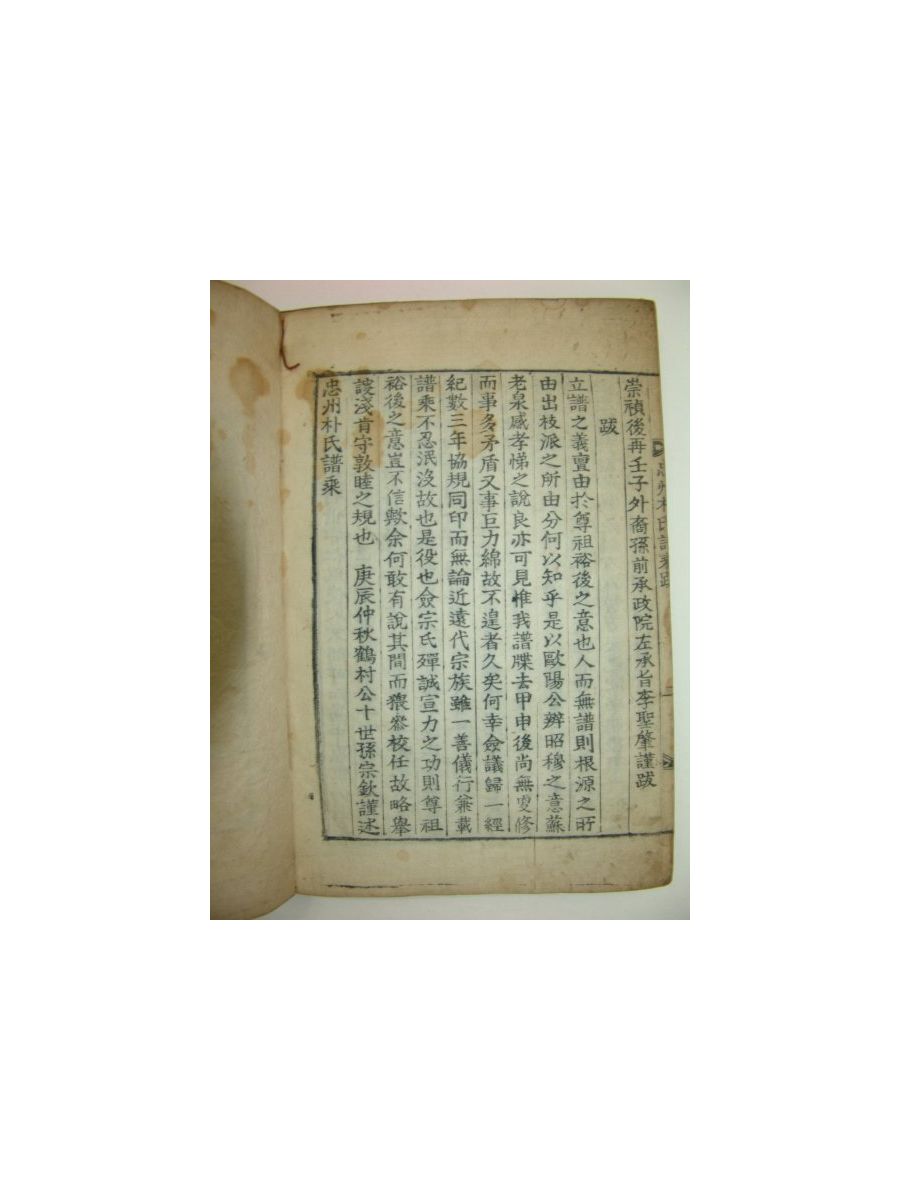 忠州朴氏譜乘跋
崇禎後再壬子外裔孫前承政院左承旨李聖肇謹跋
跋
立譜之義亶由於尊祖裕後之意也人而無譜則根源之所
由出枝派之所由分何以知乎是以歐陽公辨昭穆之意蘇
老泉感孝悌之說良亦可見惟我譜牒去甲申後尚無叟修
而事多矛盾又事巨力綿故不遑者久矣何幸僉議歸一經
紀數三年協規同印而無論近遠代宗族雖一善儀行兼載
譜乘不忍泯沒故也是役也僉宗氏殫誠宣力之功則尊祖
裕後之意豈不信歟余何敢有說其間而猥忝校任故略舉
淺肯守敦睦之規也 庚辰仲秋鶴村公十世孫宗欽謹述
忠州朴氏譜乘